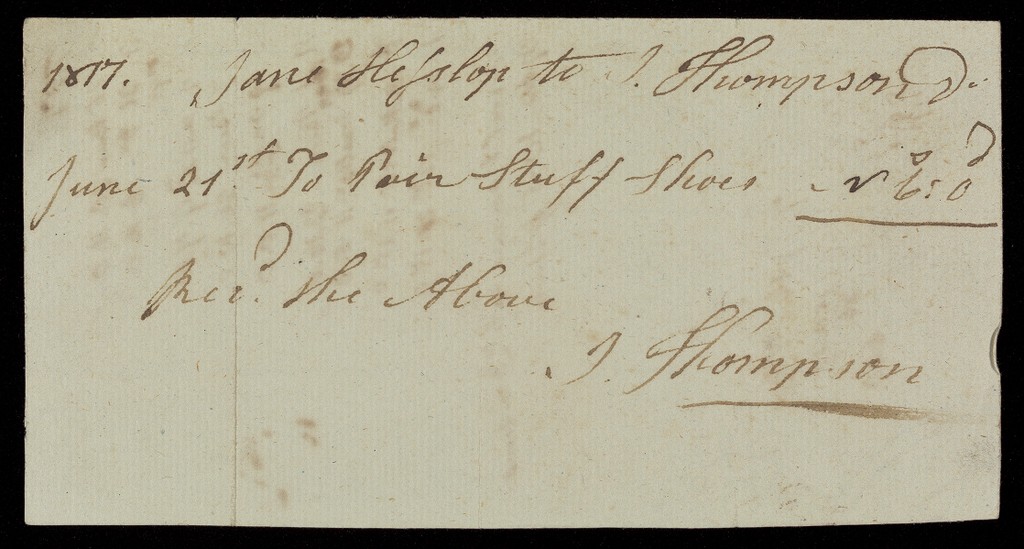 1817. Jane Heſslop to J. Thompson Dr
June 21st To Pair Stuff Shoes 6s: 0d
Recd. the Above
J. Thompson